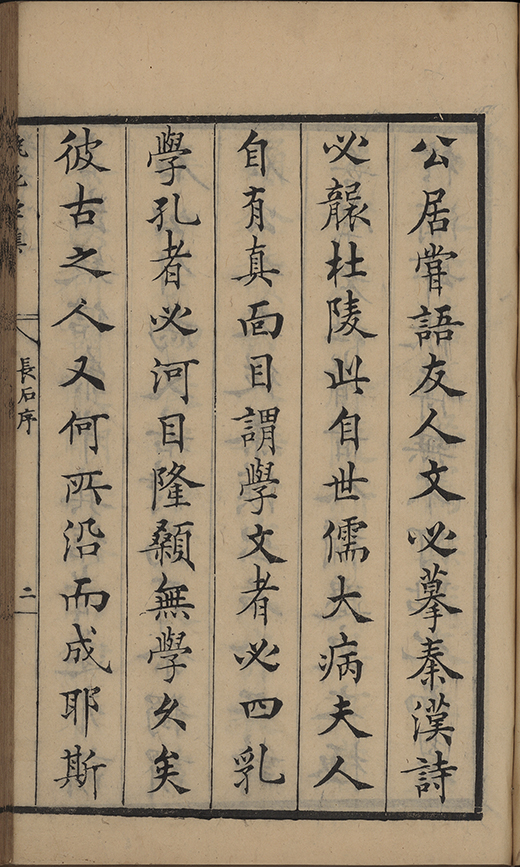 公居嘗語友人文必摹秦漢詩
必襲杜陵此自世儒大病夫人
自有真面目謂學文者必四乳
學孔者必河目隆顙無學久矣
彼古之人又何所沿而成耶斯
長石序
二